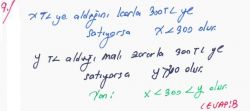 9)
x TL ye aldığını karla 300 TL ye
satıyorsa x < 300 olur.
y TL aldığı malı zararla 300 TL ye
satıyorsa y > 300 olur.
Yani: x < 300 < y olur.
CEVAP: B